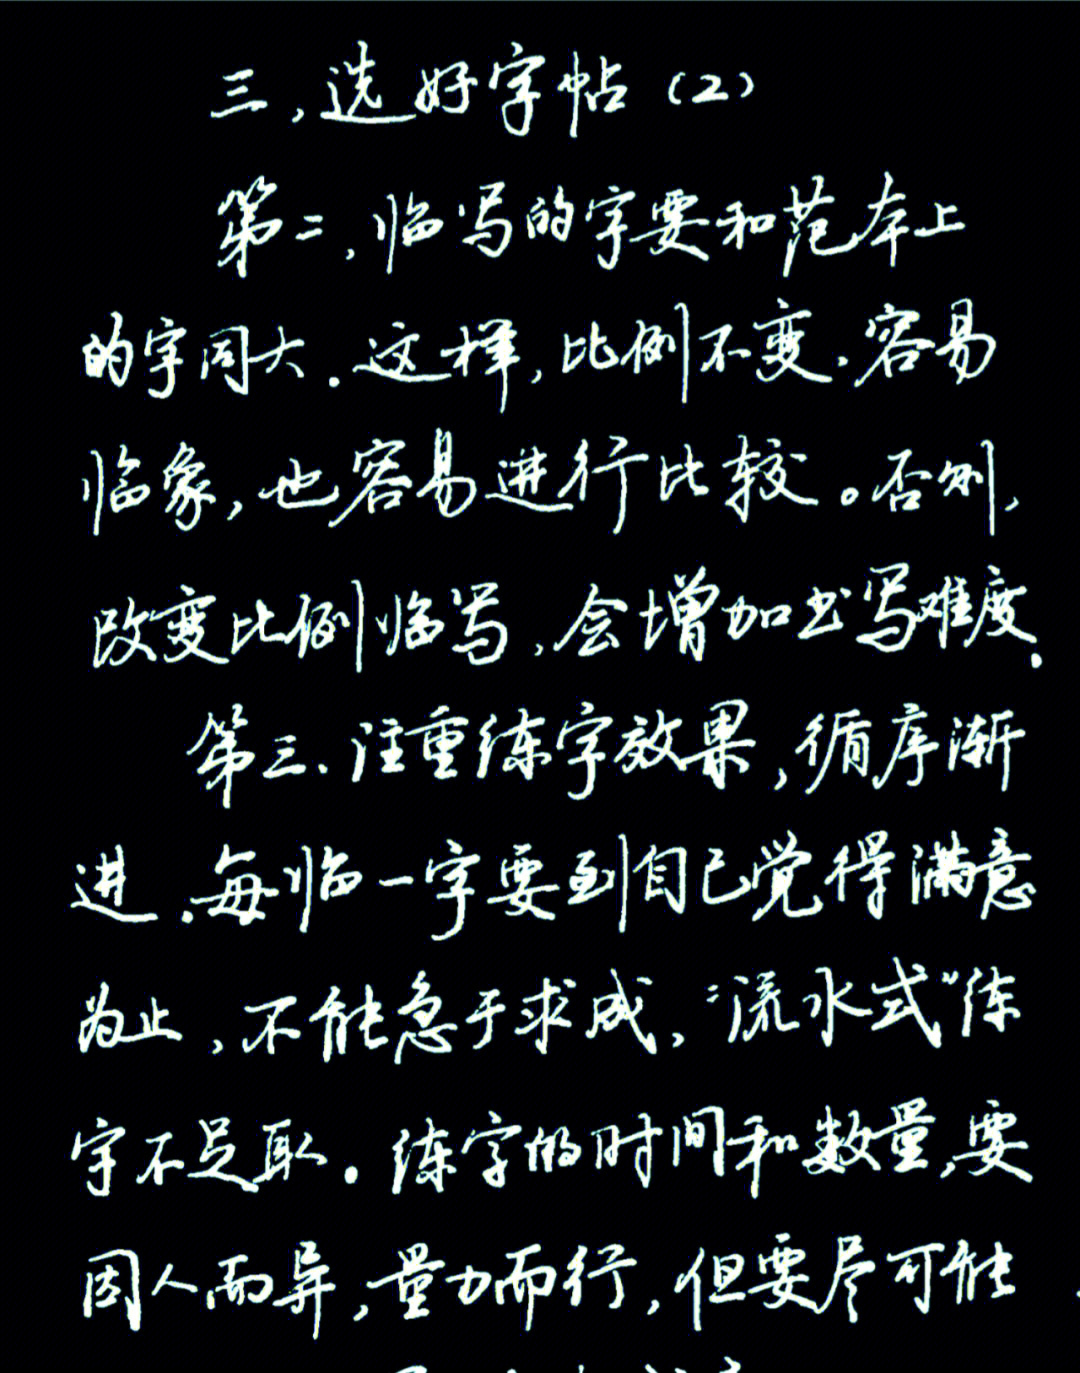 三,选好字帖(2)
第二,临写的字要和范本上
的字同大.这样,比例不变.容易
临象,也容易进行比较。否则,
改变比例临写,会增加书写难度.
第三.注重练字效果,循序渐
进.每临一字要到自己觉得满意
为止,不能急于求成,“流水式”练
字不足取.练字的时间和数量,要
因人而异,量力而行,但要尽可能